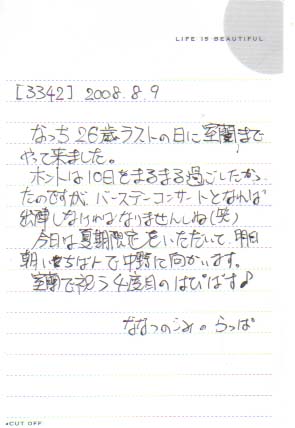 LIFE IS BEAUTIFUL
[3342] 2008.8.9
なっち26歳ラストの日に室蘭まで
やって来ました。
ホントは10日をまるまる過ごしたかっ
たのですが、バースデーコンサートとなれば
出陣しなければなりませんしね(笑)
今日は夏期限定をいただいて、明日
朝いちばんで中野に向かいます。
室蘭で祝う4度目のはぴばす♪
ななつのこみのらっぱ
CUT OFF